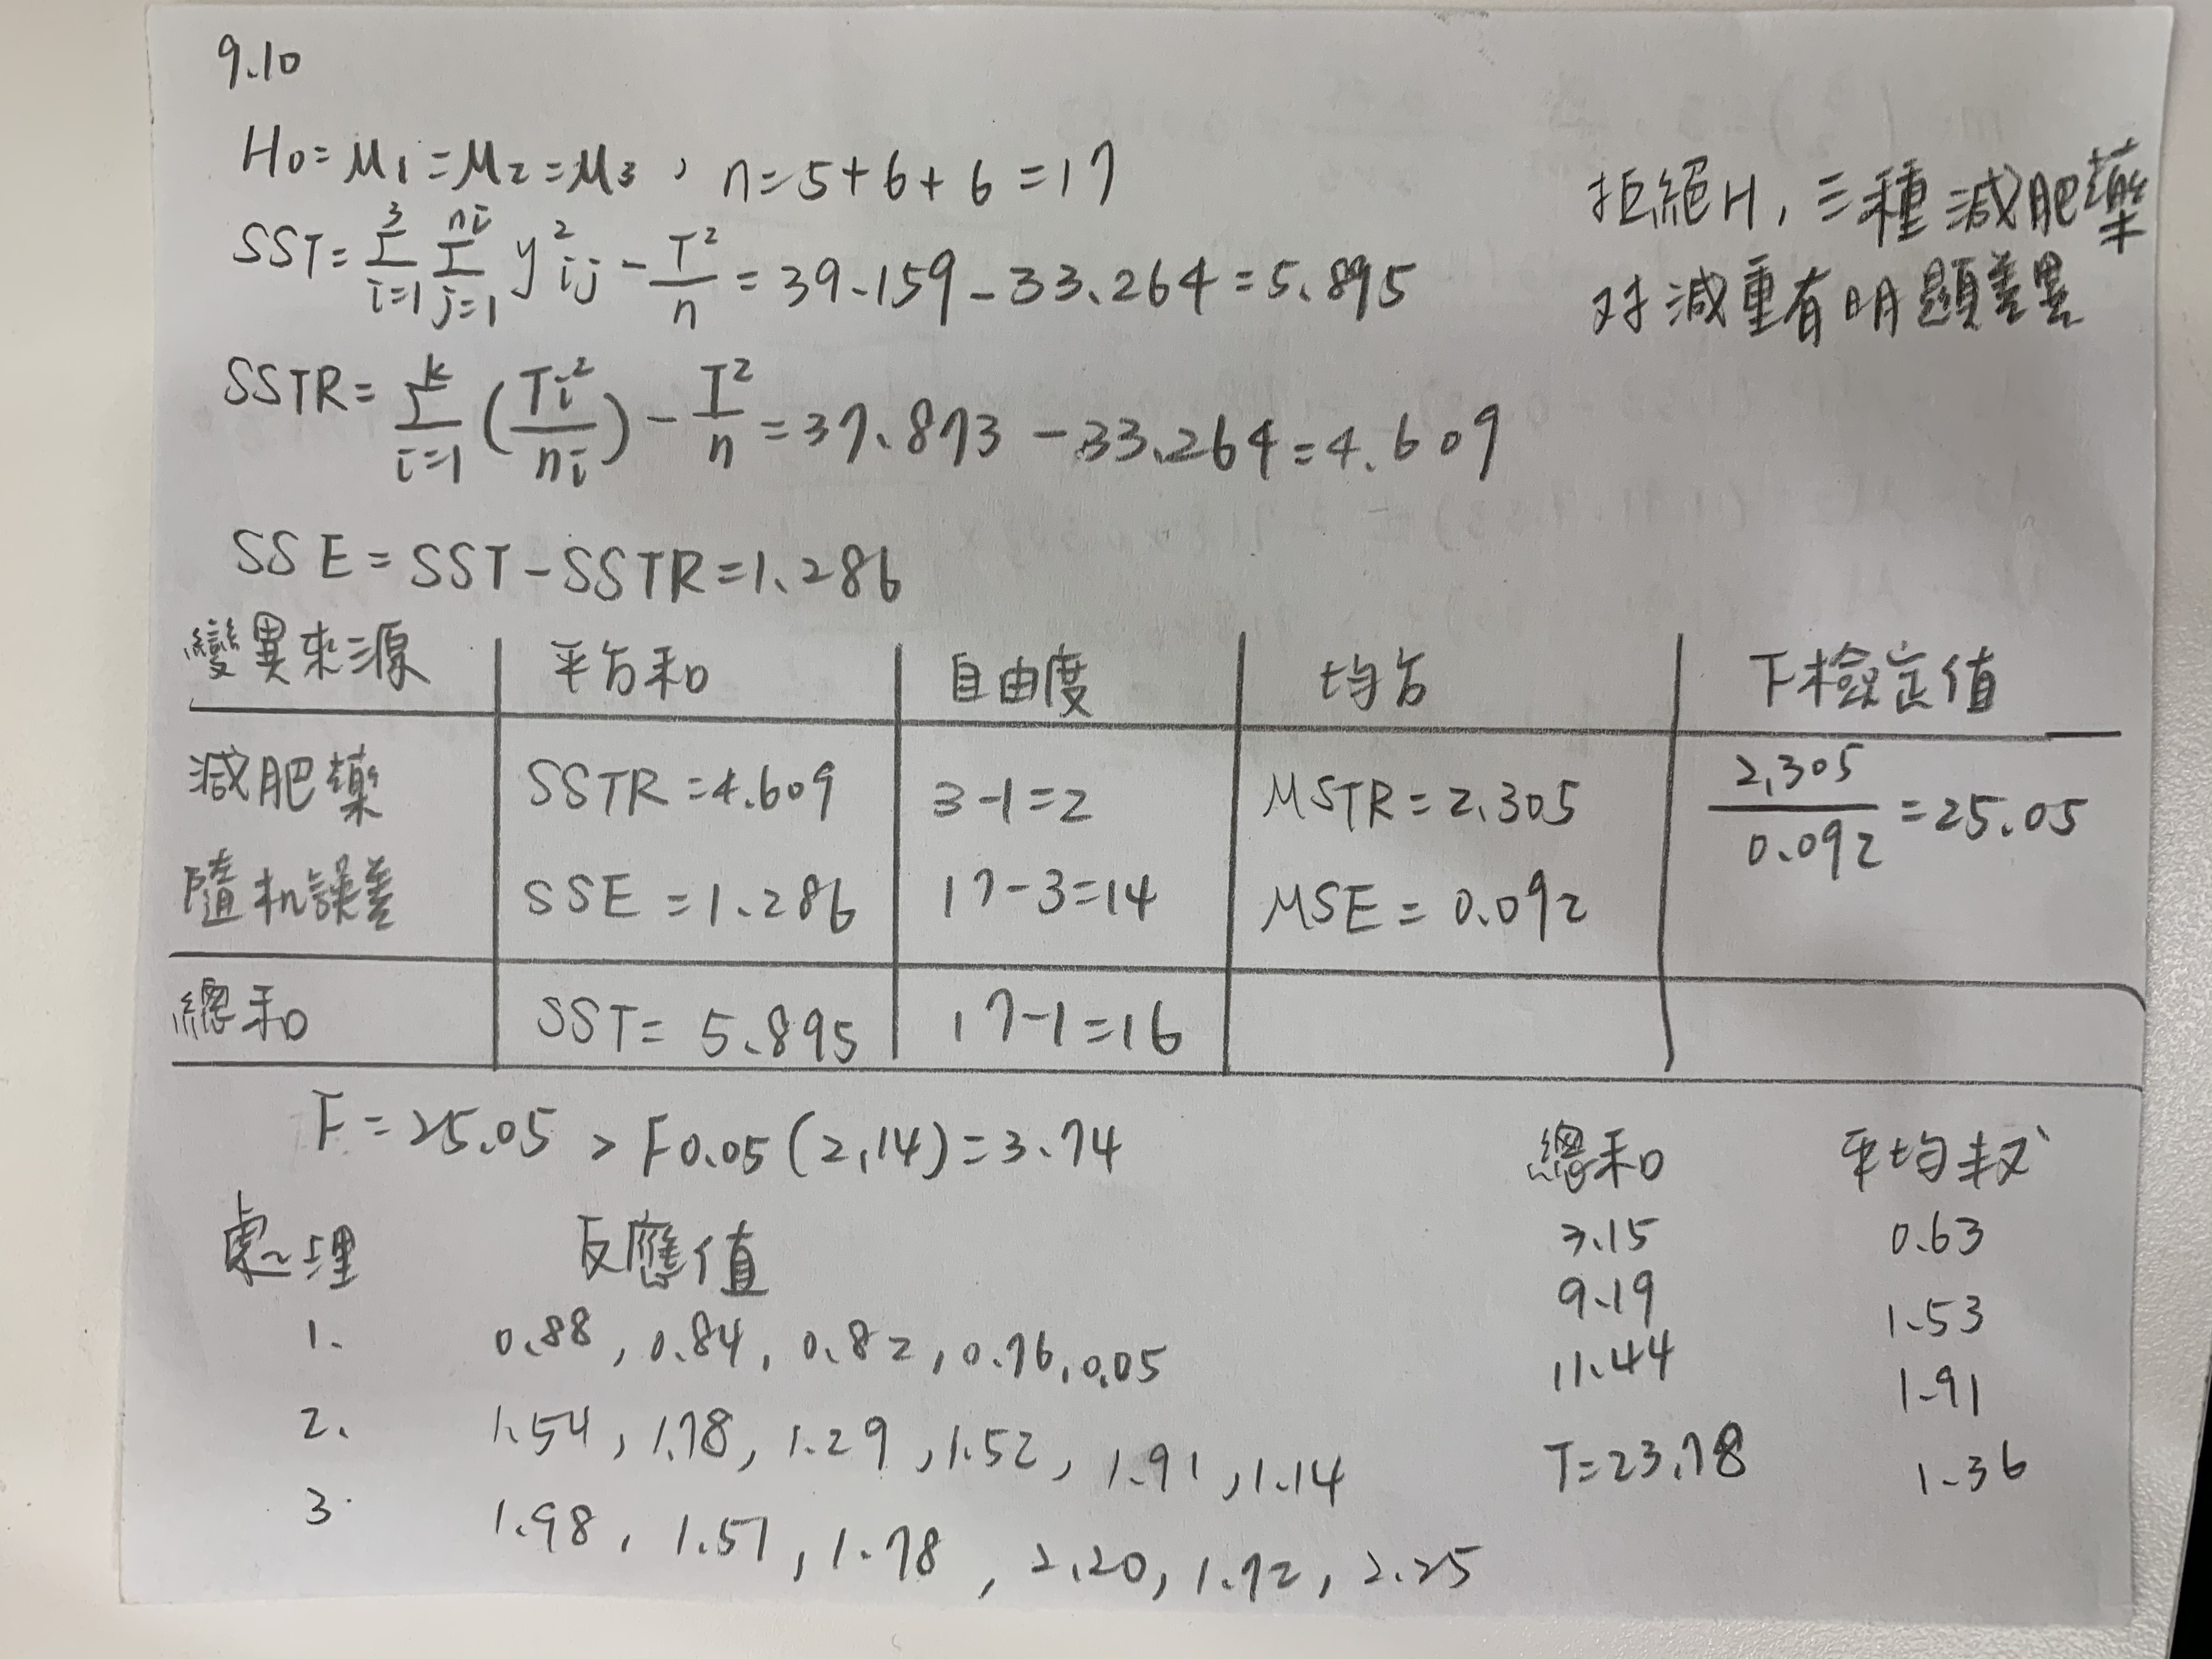 9.10
H0 = μ1 = μ2 = μ3, n = 5+6+6 = 17
SST = Σ³ᵢ₌₁ Σⁿⁱⱼ₌₁ y²ij - T²/n = 39.159 - 33.264 = 5.895
SSTR = Σᵏᵢ₌₁ (Ti²/ni) - T²/n = 37.873 - 33.264 = 4.609
SSE = SST - SSTR = 1.286
拒絕H, 三種減肥藥
對減重有明顯差異
變異來源 平方和 自由度 均方 F檢定值
減肥藥 SSTR = 4.609 3-1=2 MSTR = 2.305 2.305/0.092 = 25.05
隨机誤差 SSE = 1.286 17-3=14 MSE = 0.092
總和 SST = 5.895 17-1=16
F = 25.05 > F0.05(2,14) = 3.74
處理 反應值 總和 平均數
1. 0.88, 0.84, 0.82, 0.76, 0.05 3.15 0.63
2. 1.54, 1.78, 1.29, 1.52, 1.91, 1.14 9.19 1.53
3. 1.98, 1.57, 1.78, 2.20, 1.72, 2.25 11.44 1.91
T=23.78 1.36